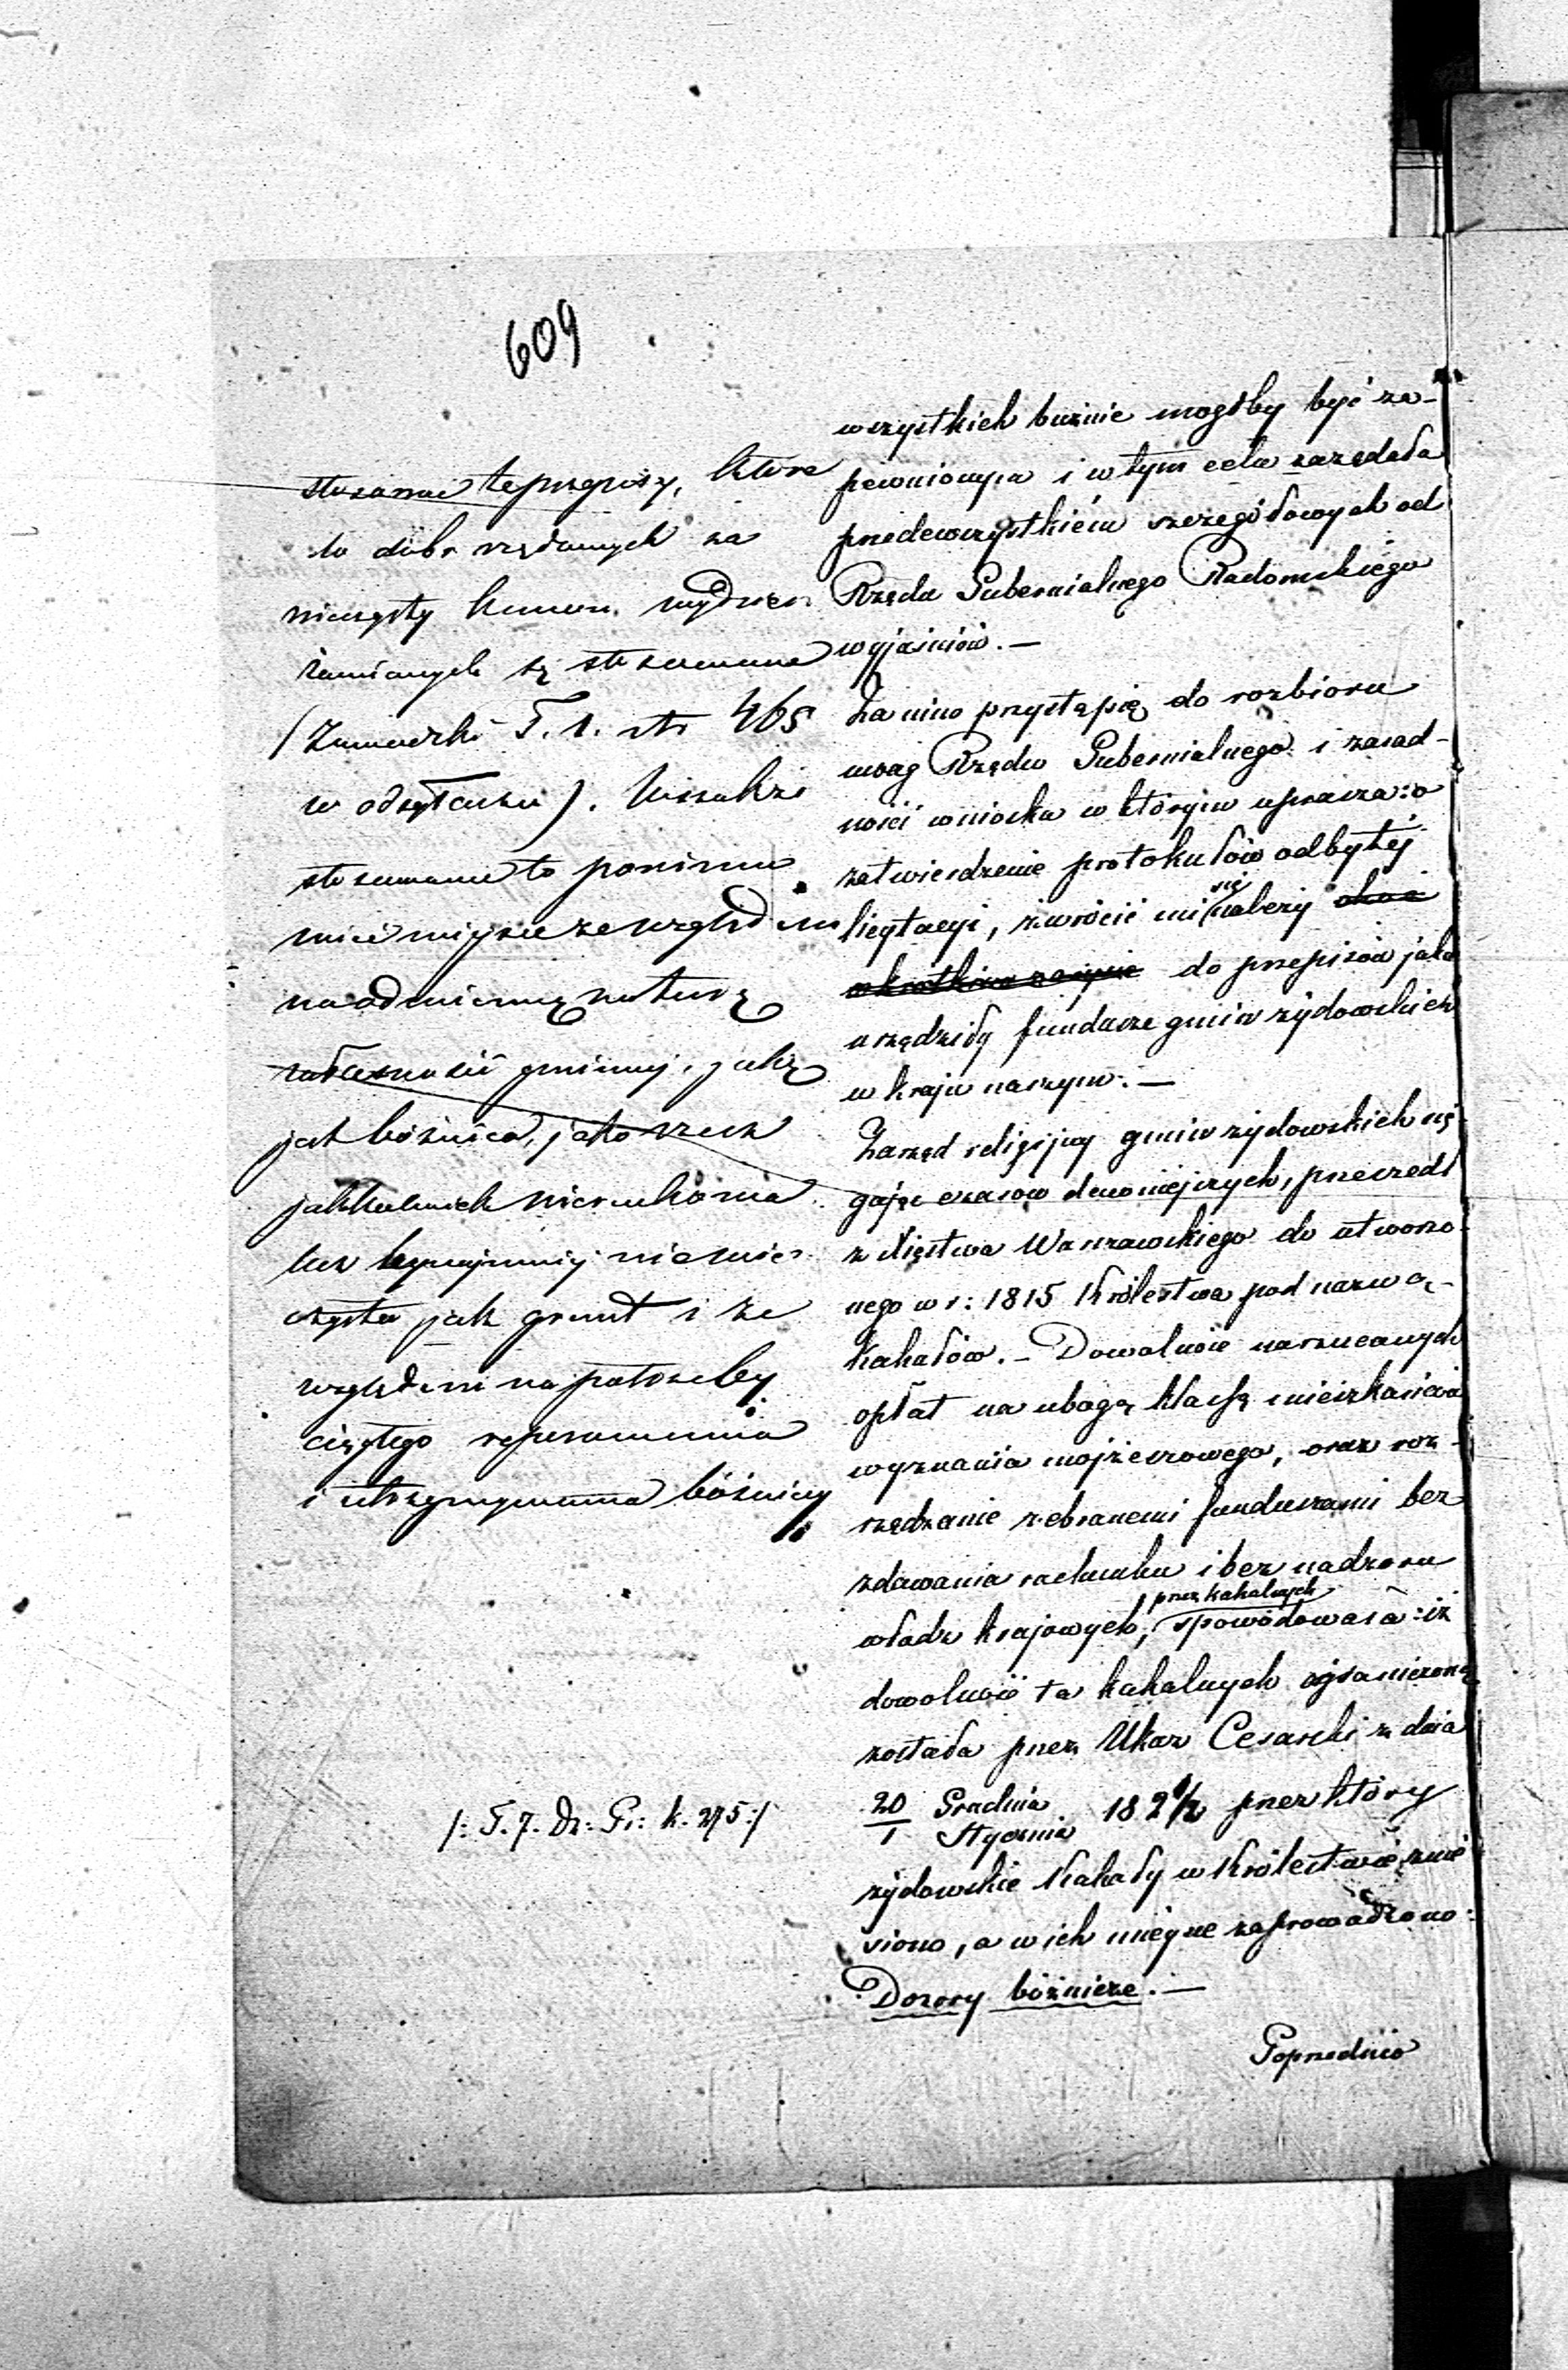 609
stosowane te przepisy, które
do dóbr rządowych za
wieczysty kanon wydzier-
żawianych są stosowane
(Zawadzki T. 1. str 465
w odsyłaczu). Wszakże
stosowanie to powinno
mieć miejsce ze względem
na odmienną naturę
własności gminnej, jaką
jest bóźnica, jako rzecz
jakkolwiek nieruchoma
lecz bynajmniej nie wie-
czysta jak grunt i ze
względem na potrzeby
ciągłego reperowania
i utrzymywania bóźnicy
/: T. 7. Dz: Pr: k. 275 :/
wszystkich bużnic mogłby być za-
pewnionym i w tym celu zażądała
przedewszystkiém szczegółowych od
Rządu Gubernialnego Radomskiego
wyjaśnień. —
Zanim przystąpię do rozbioru
uwag Rządu Gubernialnego i zasad-
ności wniosku w którym uprasza: o
zatwierdzenie protokułów odbytéj
licytacyi, zwrócić mi się należy choć
w krotkim zarysie do przepisów jakie
urządziły fundusze gmin żydowskich
w kraju naszym. —
Zarząd religijny gmin żydowskich się-
gając czasów dawniejszych, przeszedł
z Xięstwa Warszawskiego do utworzo-
nego w r: 1815 Królestwa pod nazwą
Kahałów. — Dowolność narzucanych
opłat na ubogą klassę mieszkańców
wyznania mojżeszowego, oraz roz-
rządzanie zebranemi funduszami bez
zdawania rachunku i bez nadzoru
władz krajowych, przez kahalnych spowodowała: iż
dowolność ta kahalnych ograniczoną
została przez Ukaz Cesarski z dnia
20 Grudnia / 1 Stycznia 182 1/2 przez który
żydowskie Kahały w Królestwie znie-
siono, a w ich miejsce zaprowadzono:
Dozory bóźnicze. —
Poprzednio